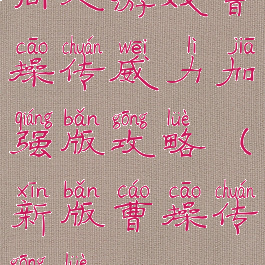 cāo chuán wēi lì jiā
操传威力加
qiáng bǎn gōng luè
强版攻略（
xīn bǎn cáo cāo chuán
新版曹操传
gōng luè